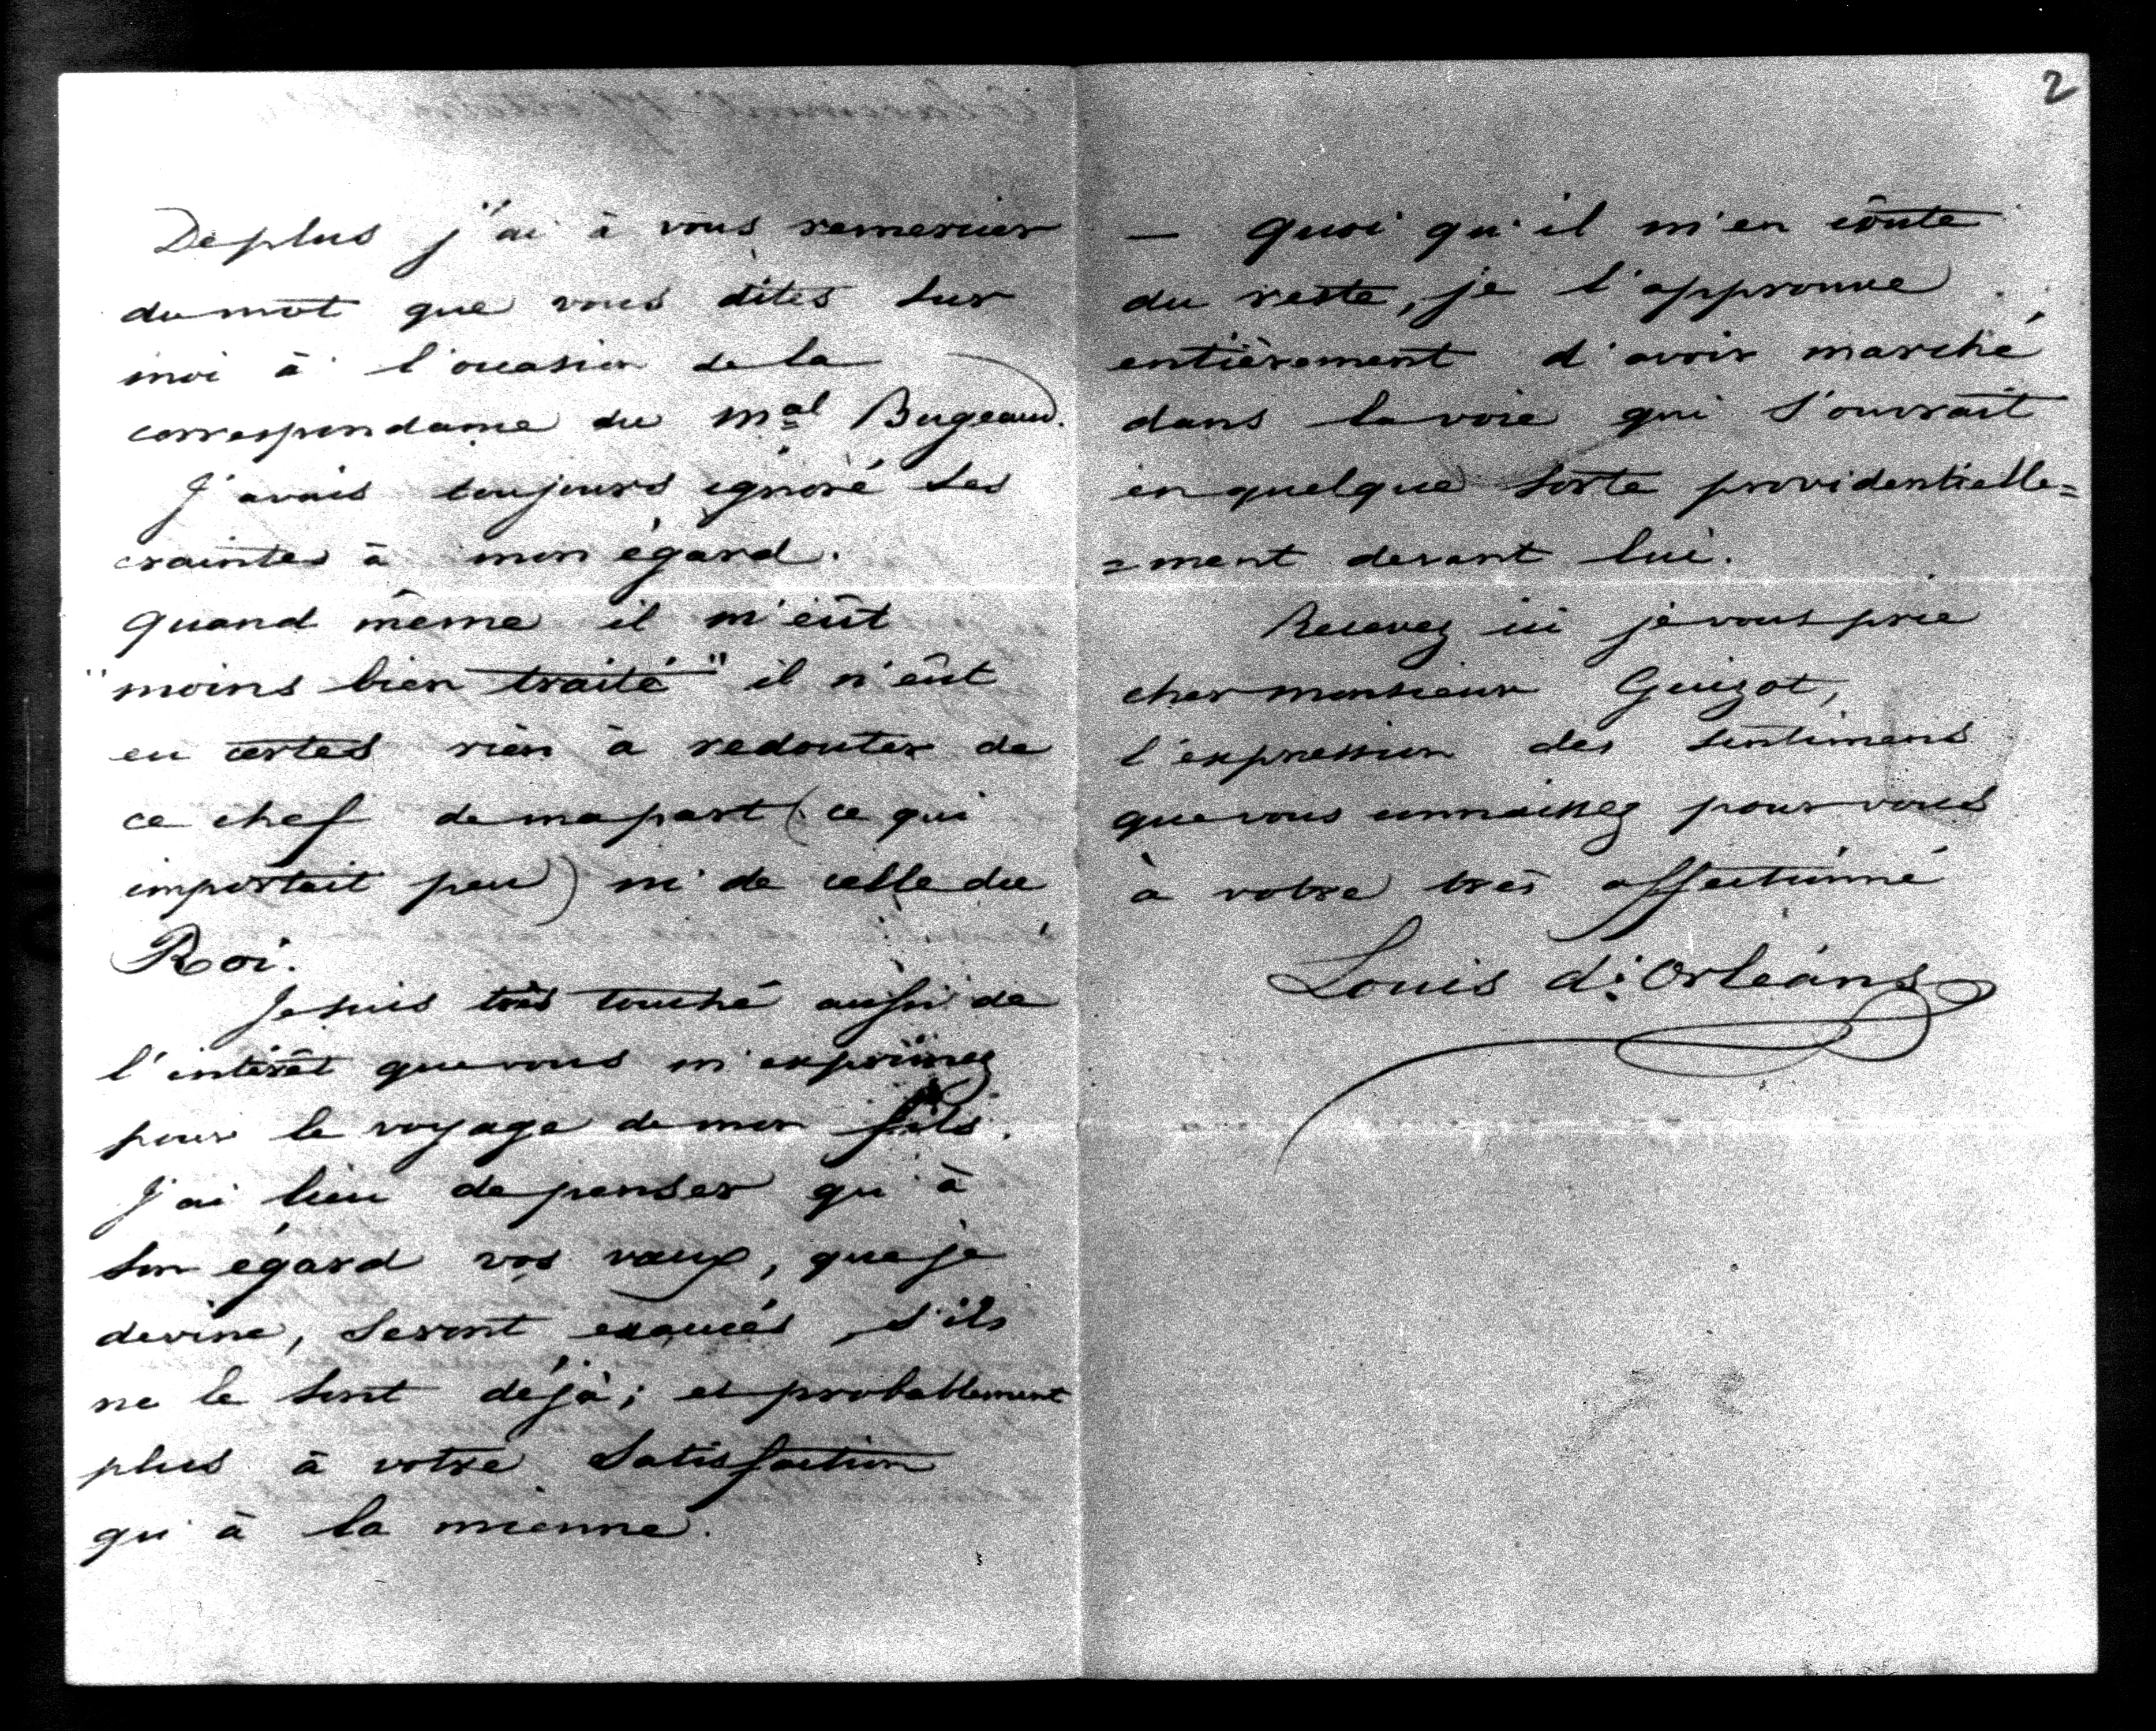 De plus j'ai à vous remercier
du mot que vous dites sur
moi à l'occasion de la
correspondance du Mal Bugeaud.
J'avais toujours ignoré ses
craintes à mon égard.
Quand même il m'eût
"moins bien traité" il n'eût
eu certes rien à redouter de
ce chef de ma part (ce qui
importait peu) ni de celle du
Roi.
Je suis très touché aussi de
l'intérêt que vous m'exprimez
pour le voyage de mon fils.
J'ai lieu de penser qu'à
son égard vos vœux, que je
devine, seront exaucés s'ils
ne le sont déjà; et probablement
plus à votre satisfaction
qu'à la mienne.
2
— Quoi qu'il m'en coûte
du reste, je l'approuve
entièrement d'avoir marché
dans la voie qui s'ouvrait
en quelque sorte providentielle=
=ment devant lui.
Recevez ici je vous prie
cher monsieur Guizot,
l'expression des sentimens
que vous connaissez pour vous
à votre très affectionné
Louis d'Orléans